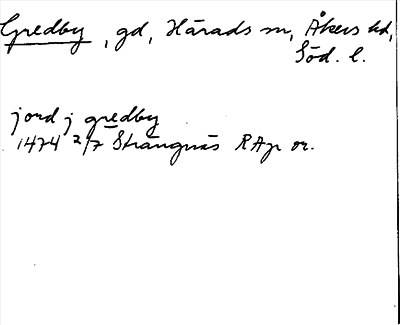 Gredby, gd, Härads sn, Åkers hd,
Söd. l.
jord j gredby
1474 2/7 Strängnäs RAp or.